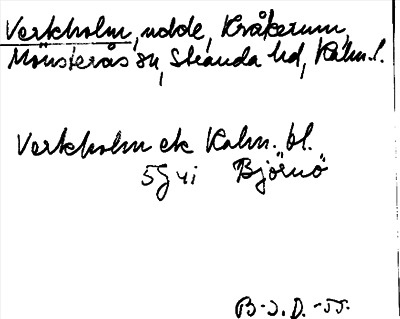 Verkholm, udde, Kråkerum,
Mönsterås sn, Stranda hd, Kalm. l.
Verkholm ek Kalm. bl.
5G4i Björnö
B-J.D. -55.